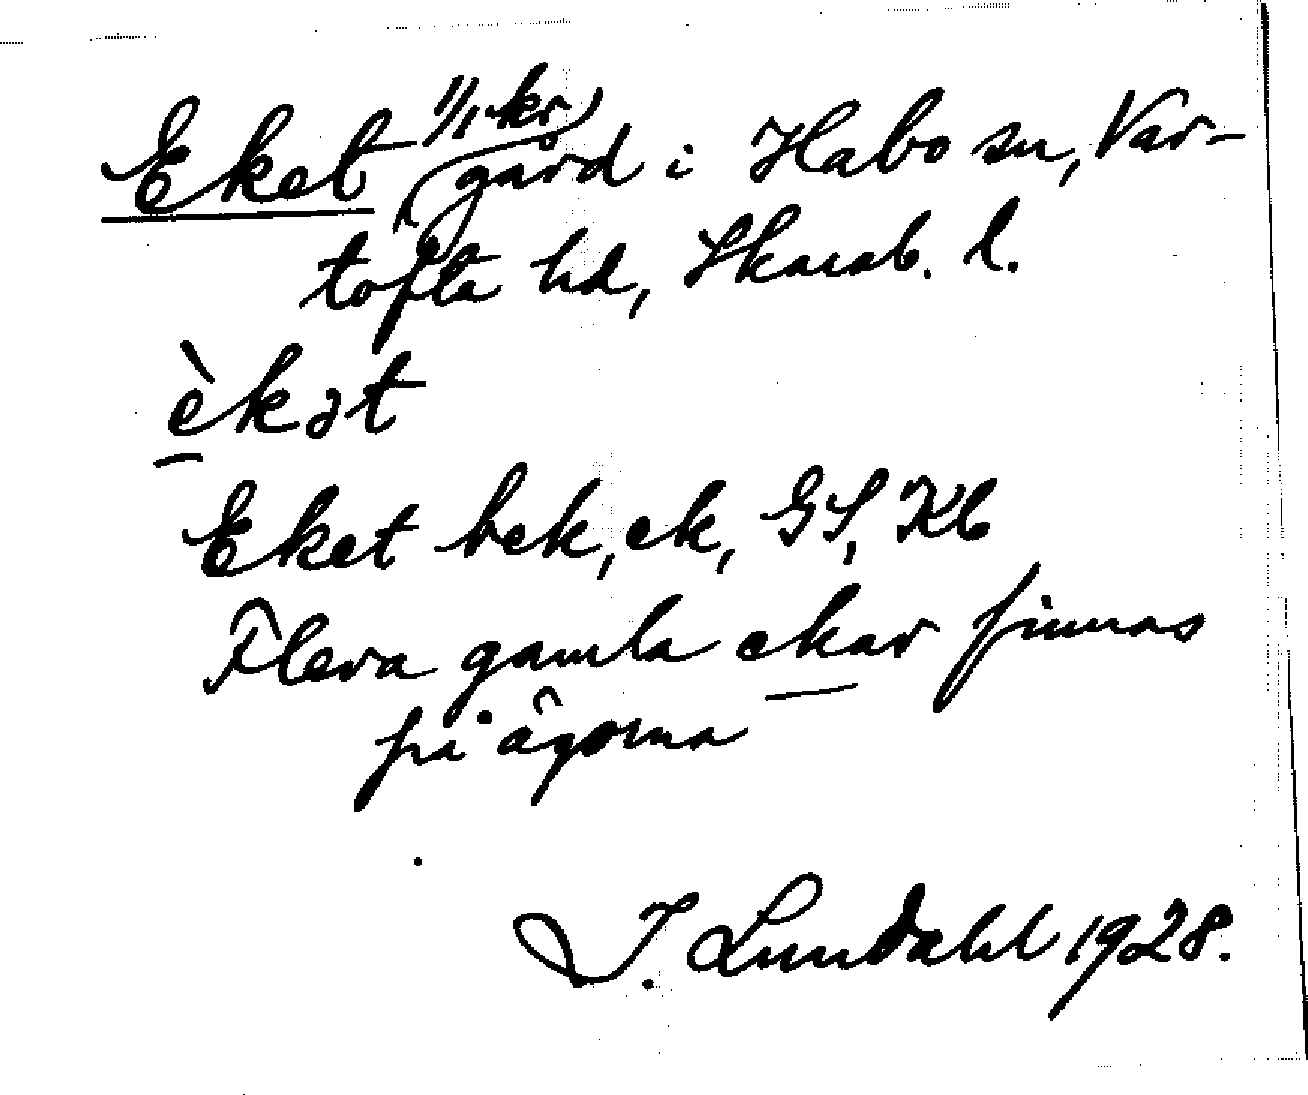 Eket 1/1 kr) gård i Habo sn, Var-
tofta hd, Skarab. l.
èkət
Eket bek, ek, GS, Kb
Flera gamla ekar finnas
på ägorna
I. Lundahl 1928.